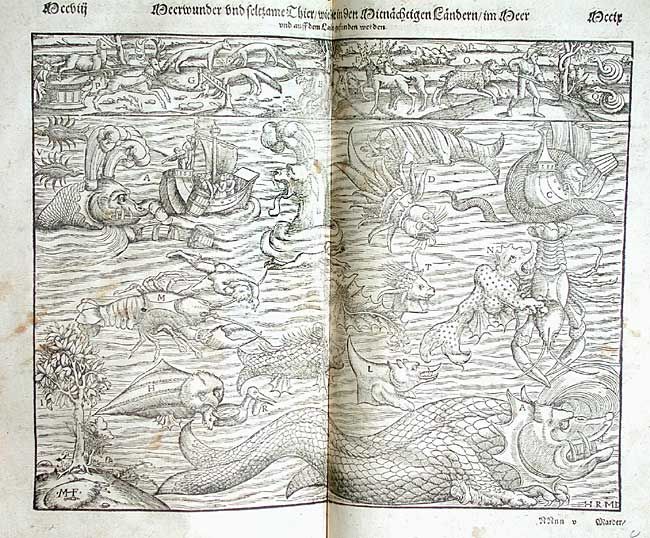 Mccviij Meerwunder vnd seltzame Thier/ in den Mitnächtigen Ländern/ im Meer Mccix
vnd auff dem gefunden werden.
P G O
A D C
T N
M
L
H R A
MF HRMD
NNnn v Marder/